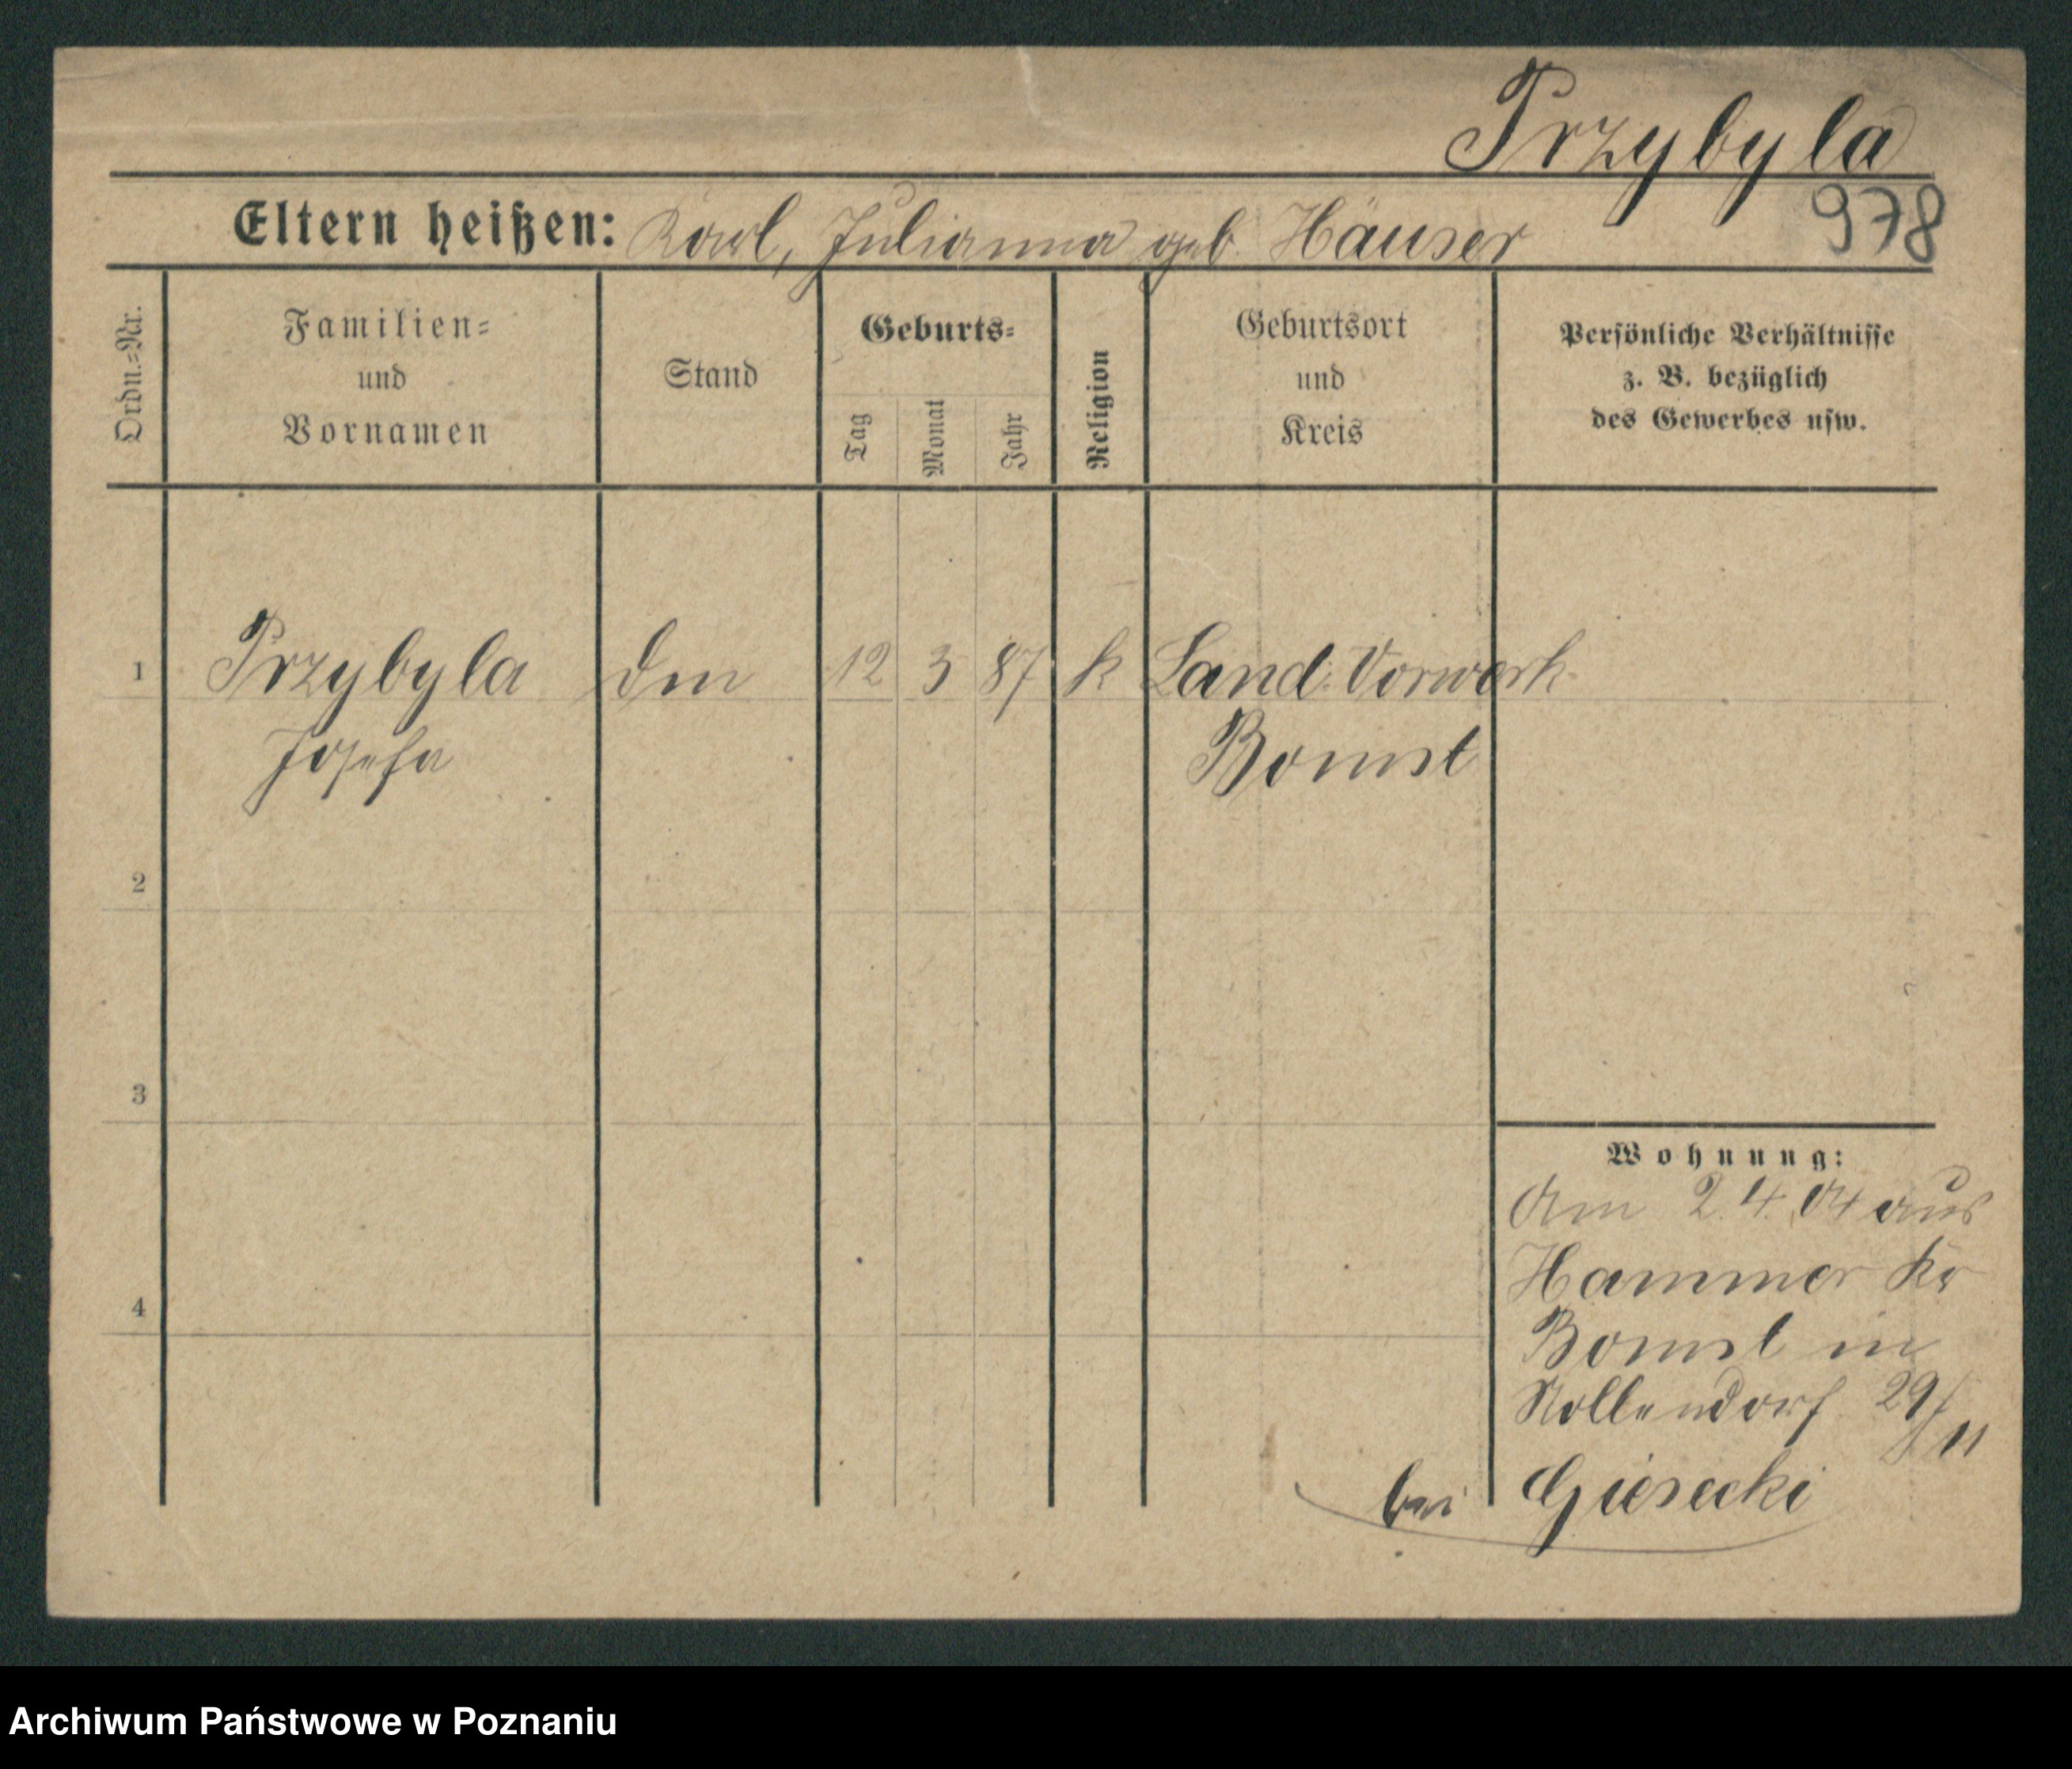 Przybyla
Eltern heißen: Karl, Julianna geb. Häuser
978
Ordn.=Nr.
Familien=
und
Vornamen
Stand
Geburts=
Tag
Monat
Jahr
Religion
Geburtsort
und
Kreis
Persönliche Verhältnisse
z. B. bezüglich
des Gewerbes usw.
1 Przybyla 12 3 87 k Land. Vorwerk
Josefa Bomst
2
3
4
Wohnung:
Am 2.4.04 aus
Hammer Kr
Bomst in
Nollendorf 29/11
bei Giesecki
Archiwum Państwowe w Poznaniu